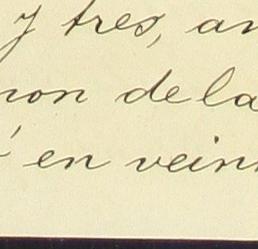 y tres, an
non de la
en vein